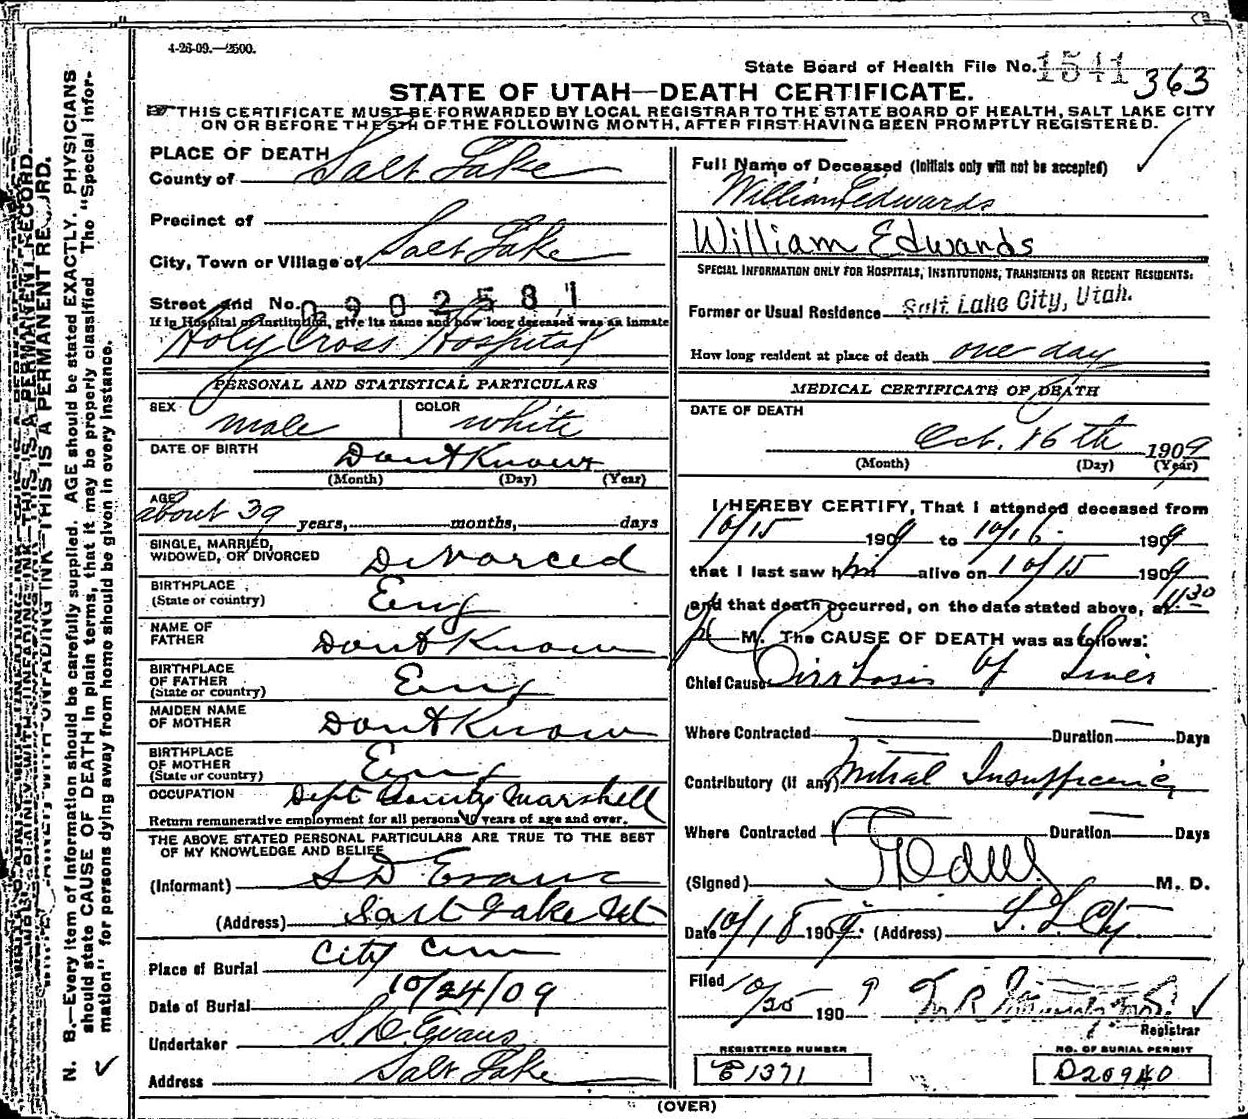 4-26-09.—2500.
State Board of Health File No. 1541 363
STATE OF UTAH—DEATH CERTIFICATE.
THIS CERTIFICATE MUST BE FORWARDED BY LOCAL REGISTRAR TO THE STATE BOARD OF HEALTH, SALT LAKE CITY
ON OR BEFORE THE 5TH OF THE FOLLOWING MONTH, AFTER FIRST HAVING BEEN PROMPTLY REGISTERED.
PLACE OF DEATH
County of Salt Lake
Precinct of
City, Town or Village of Salt Lake
Street and No. 0902581
If in Hospital or Institution, give its name and how long deceased was an inmate
Holy Cross Hospital
PERSONAL AND STATISTICAL PARTICULARS
SEX male COLOR white
DATE OF BIRTH Dont Know
(Month) (Day) (Year)
AGE
about 39 years, months, days
SINGLE, MARRIED,
WIDOWED, OR DIVORCED Divorced
BIRTHPLACE
(State or country) Eng
NAME OF
FATHER Dont Know
BIRTHPLACE
OF FATHER
(State or country) Eng
MAIDEN NAME
OF MOTHER Dont Know
BIRTHPLACE
OF MOTHER
(State or country) Eng
OCCUPATION Dept County Marshell
Return remunerative employment for all persons 10 years of age and over.
THE ABOVE STATED PERSONAL PARTICULARS ARE TRUE TO THE BEST
OF MY KNOWLEDGE AND BELIEF
(Informant) S D Evans
(Address) Salt Lake Ut
Place of Burial City Cem
Date of Burial 10/24/09
Undertaker S. D. Evans
Address Salt Lake
Full Name of Deceased (Initials only will not be accepted)
William Edwards
William Edwards
SPECIAL INFORMATION ONLY FOR HOSPITALS, INSTITUTIONS, TRANSIENTS OR RECENT RESIDENTS:
Former or Usual Residence Salt Lake City, Utah.
How long resident at place of death one day
MEDICAL CERTIFICATE OF DEATH
DATE OF DEATH
Oct. 16th 1909
(Month) (Day) (Year)
I HEREBY CERTIFY, That I attended deceased from
10/15 1909 to 10/16 1909
that I last saw him alive on 10/15 1909
and that death occurred, on the date stated above, at 11:30
P M. The CAUSE OF DEATH was as follows:
Chief Cause Cirrhosis of Liver
Where Contracted Duration Days
Contributory (if any) Mitral Insufficiency
Where Contracted Duration Days
(Signed) M. D.
Date 10/18 1909. (Address) S. L. City
Filed 10/25 1909
Registrar
REGISTERED NUMBER
E 1371
NO. OF BURIAL PERMIT
D20940
(OVER)
THIS IS A PERMANENT RECORD.
N. B.—Every item of information should be carefully supplied. AGE should be stated EXACTLY. PHYSICIANS
should state CAUSE OF DEATH in plain terms, that it may be properly classified. The "Special Infor-
mation" for persons dying away from home should be given in every instance.